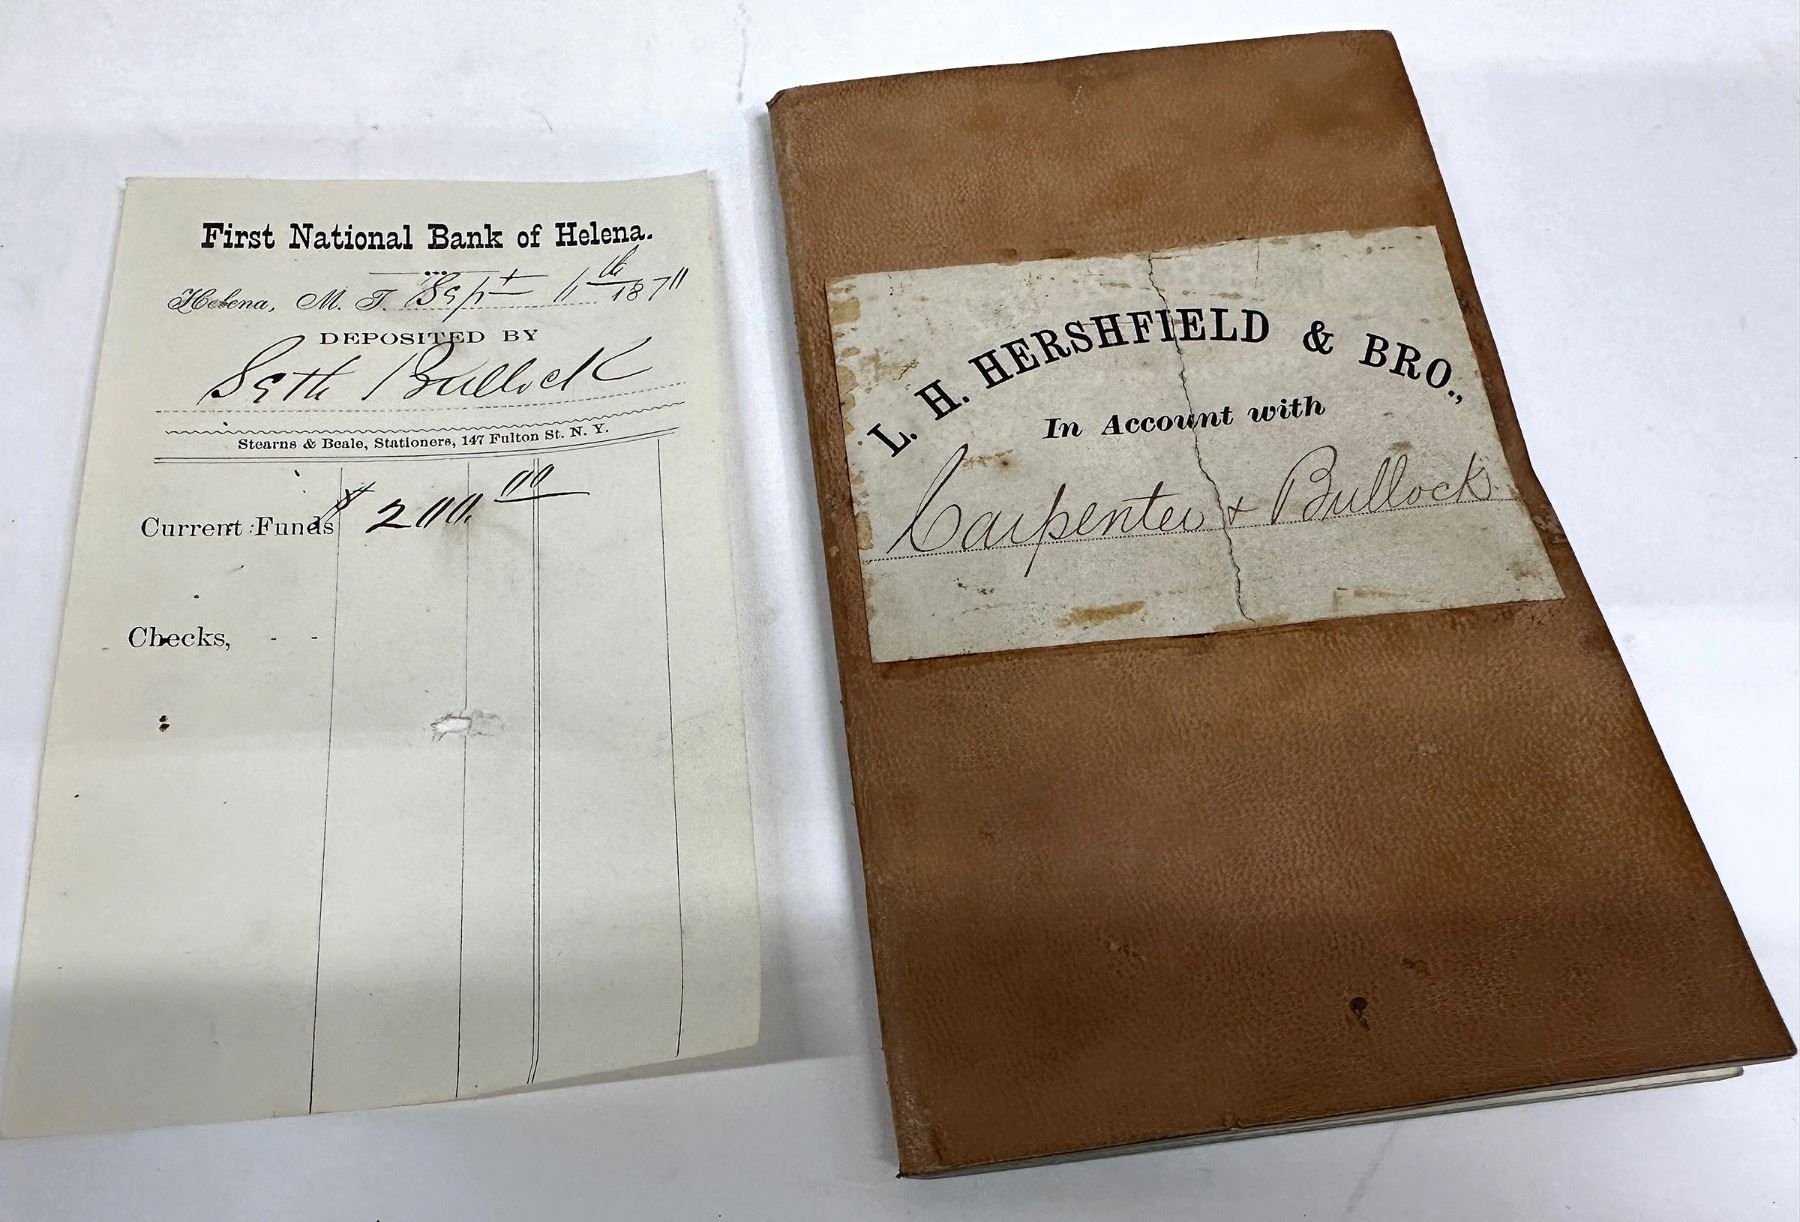 First National Bank of Helena.
Helena, M. T. Sept 11th 1870
DEPOSITED BY
Seth Bullock
Stearns & Beale, Stationers, 147 Fulton St. N. Y.
Current Funds $ 200.00
Checks, - -
L. H. HERSHFIELD & BRO.,
In Account with
Carpenter & Bullock